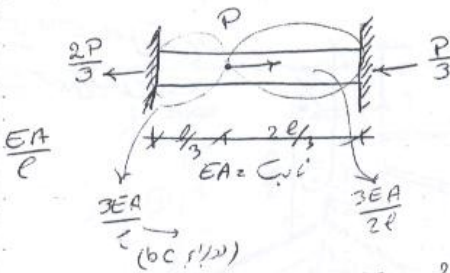 P
2P/3
P/3
EA/l
l/3
2l/3
EA = ثابت
3EA/l
3EA/2l